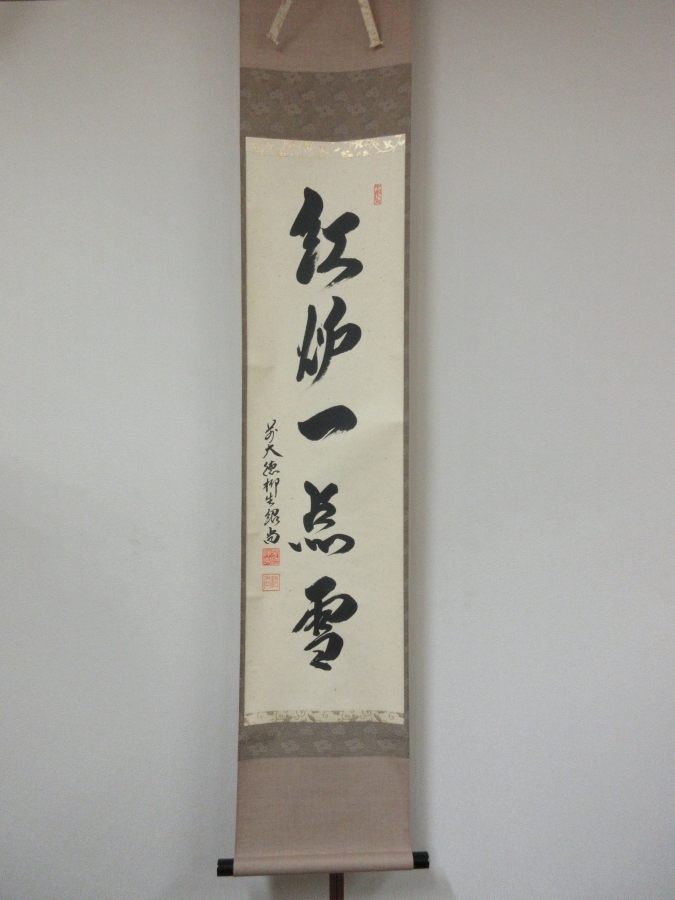 紅炉一点雪
前大徳柳生紹尚